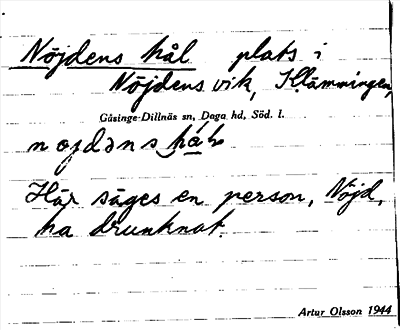 Nöjdens hål plats i
Nöjdens vik, Klämmingen,
Gåsinge-Dillnäs sn, Daga hd, Söd. l.
Här säges en person, Nöjd,
ha drunknat.
Artur Olsson 1944